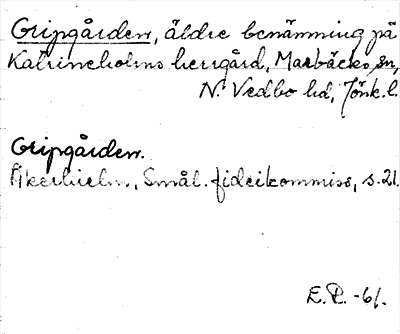 Gripgården, äldre benämning på
Katrineholms herrgård, Marbäcks sn,
N. Vedbo hd, Jönk. l.
Gripgården.
Åkerhielm, Smål. fideikommiss, s. 21.
E. P. -61.